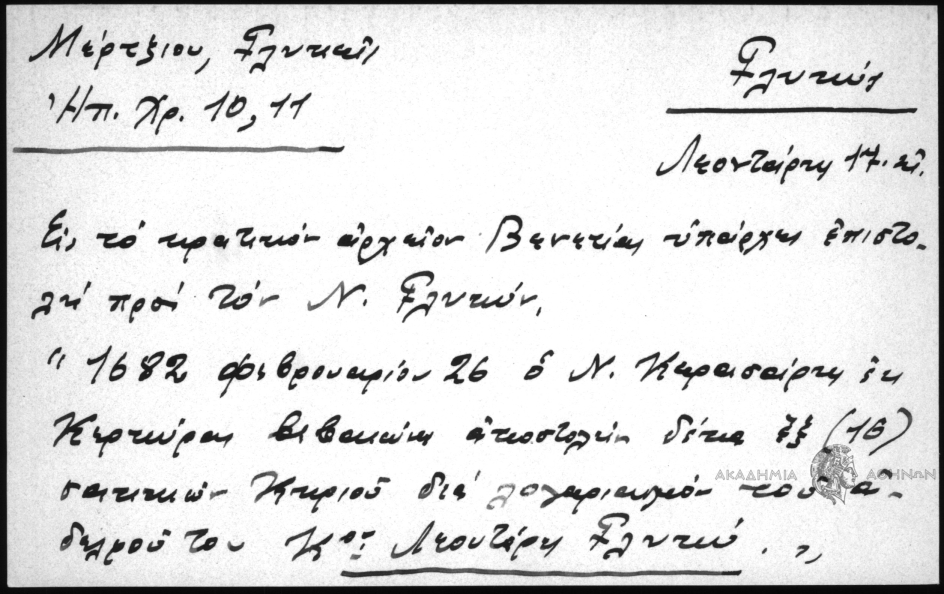 Μέρτζιου, Γλυκεῖς
Ἠπ. Χρ. 10, 11
Γλυκύς
Λεοντάρης 17. αἰ.
Εἰς τό κρατικόν ἀρχεῖον Βενετίας ὑπάρχει ἐπιστο-
λή πρός τόν Ν. Γλυκύν.
"1682 Φεβρουαρίου 26 ὁ Ν. Καραϊσαρης ἐκ
Κερκύρας βεβαιώνει ἀποστολήν δέκα ἕξ (16)
σακκιῶν Κηριοῦ διά λογαριασμόν τοῦ ἀ-
δελφοῦ του Κου Λεοντάρη Γλυκύ."
ΑΚΑΔΗΜΙΑ ΑΘΗΝΩΝ